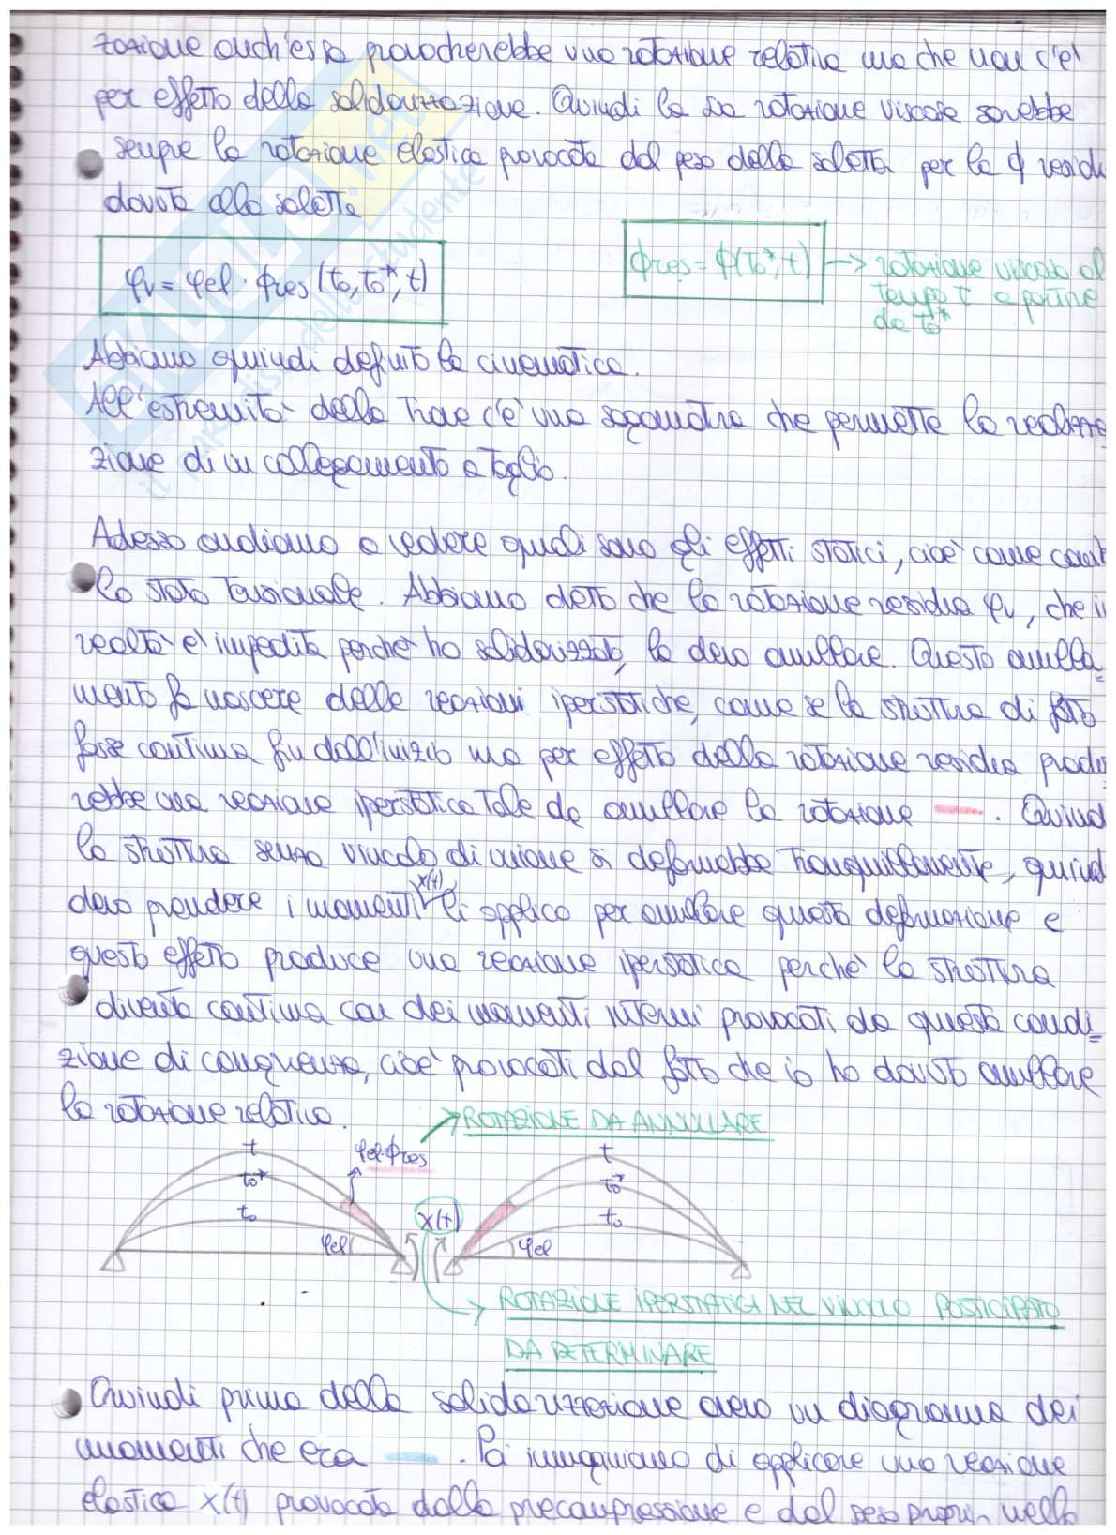 tazione anch'essa provocherebbe una rotazione relativa ma che non c'è
per effetto della solidarizzazione. Quindi la sua rotazione viscosa sarebbe
sempre la rotazione elastica provocata dal peso della soletta per la ϕ residu
dovuta alla soletta
φv = φel · ϕres (to, to*, t)
ϕres = ϕ(to*, t) → rotazione viscosa al
tempo t a partire
da to*
Abbiamo quindi definito la cinematica.
All'estremità della trave c'è una sagomatura che permette la realizza
zione di un collegamento a taglio.
Adesso andiamo a vedere quali sono gli effetti statici, cioè come camb
lo stato tensionale. Abbiamo detto che la rotazione residua φv, che i
realtà è impedita perché ho solidarizzato, la devo annullare. Questo annulla=
mento fa nascere delle reazioni iperstatiche, come se la struttura di fatto
fosse continua fin dall'inizio ma per effetto della rotazione residua produ
rebbe una reazione iperstatica tale da annullare la rotazione . Quind
la struttura senza vincolo di unione si deformerebbe tranquillamente, quind
devo prendere i momenti x(t) li applico per annullare questa deformazione e
questo effetto produce una reazione iperstatica perché la struttura
diventa continua con dei momenti interni provocati da questa condi=
zione di congruenza, cioè provocati dal fatto che io ho dovuto annullare
la rotazione relativa.
ROTAZIONE DA ANNULLARE
t
φel·ϕres
t
to*
to*
to
x(t)
to
φel
φel
ROTAZIONE IPERSTATICA NEL VINCOLO POSTICIPATO
DA DETERMINARE
Quindi prima della solidarizzazione avevo un diagramma dei
momenti che era . Poi immaginiamo di applicare una reazione
elastica x(t) provocata dalla precompressione e dal peso proprio nella